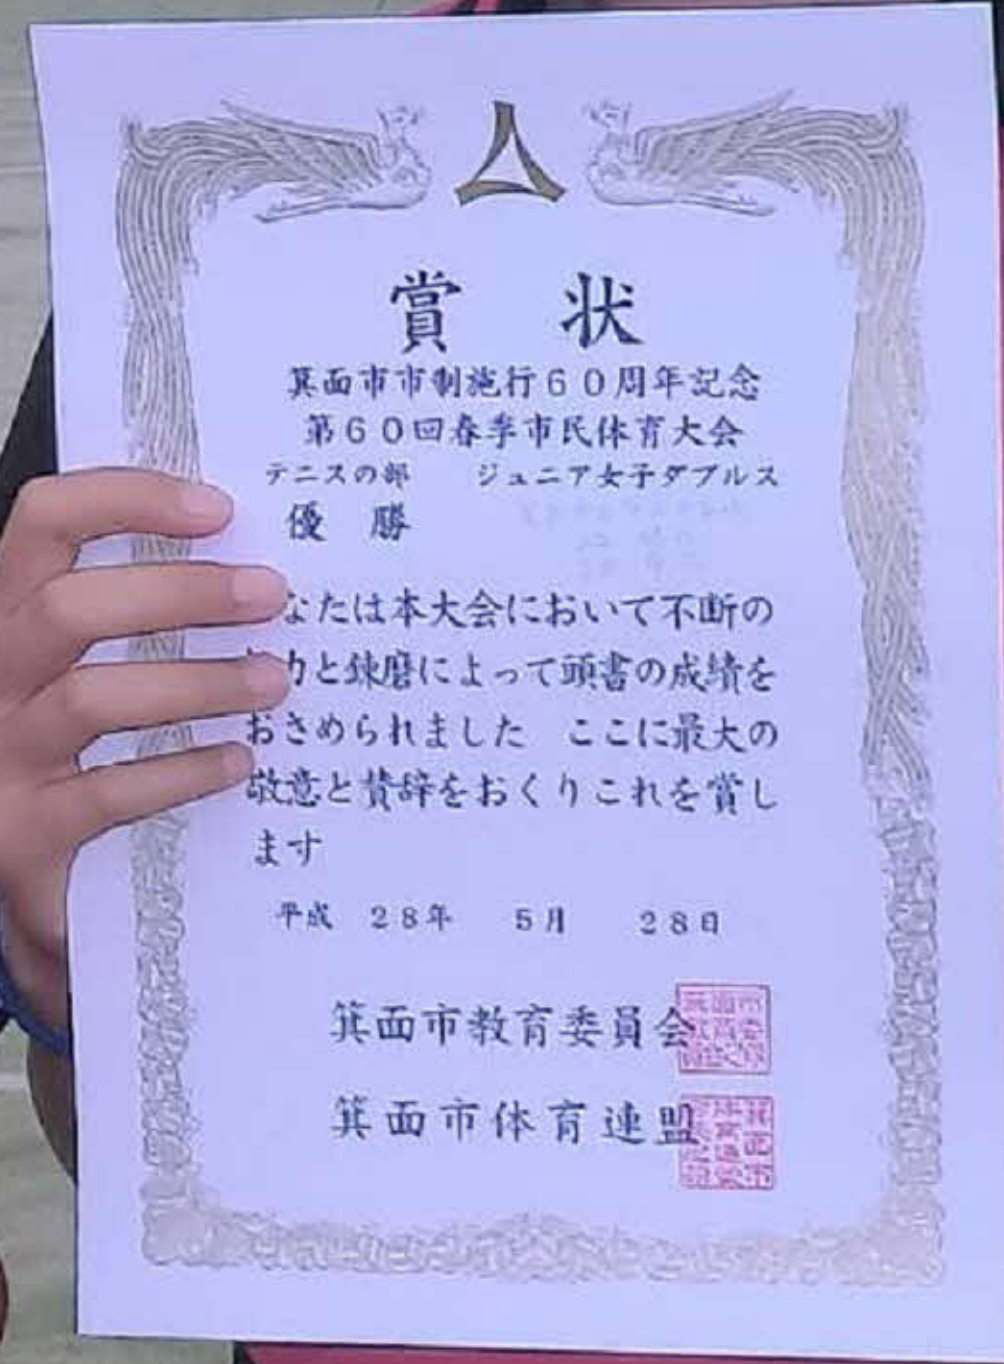 賞 状
箕面市市制施行60周年記念
第60回春季市民体育大会
テニスの部 ジュニア女子ダブルス
優 勝
なたは本大会において不断の
力と錬磨によって頭書の成績を
おさめられました ここに最大の
敬意と賛辞をおくりこれを賞し
ます
平成 28年 5月 28日
箕面市教育委員会
箕面市体育連盟